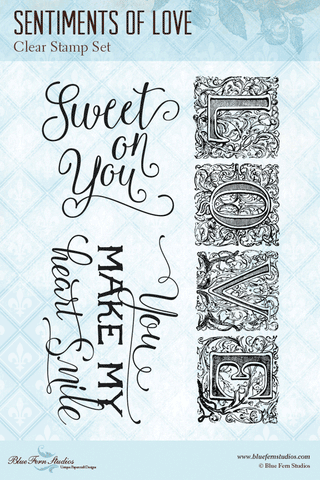 SENTIMENTS OF LOVE
Clear Stamp Set
Sweet
on
You
LOVE
You
MAKE MY
heart Smile
Blue Fern Studios
Unique Papercraft Designs
www.bluefernstudios.com
© Blue Fern Studios